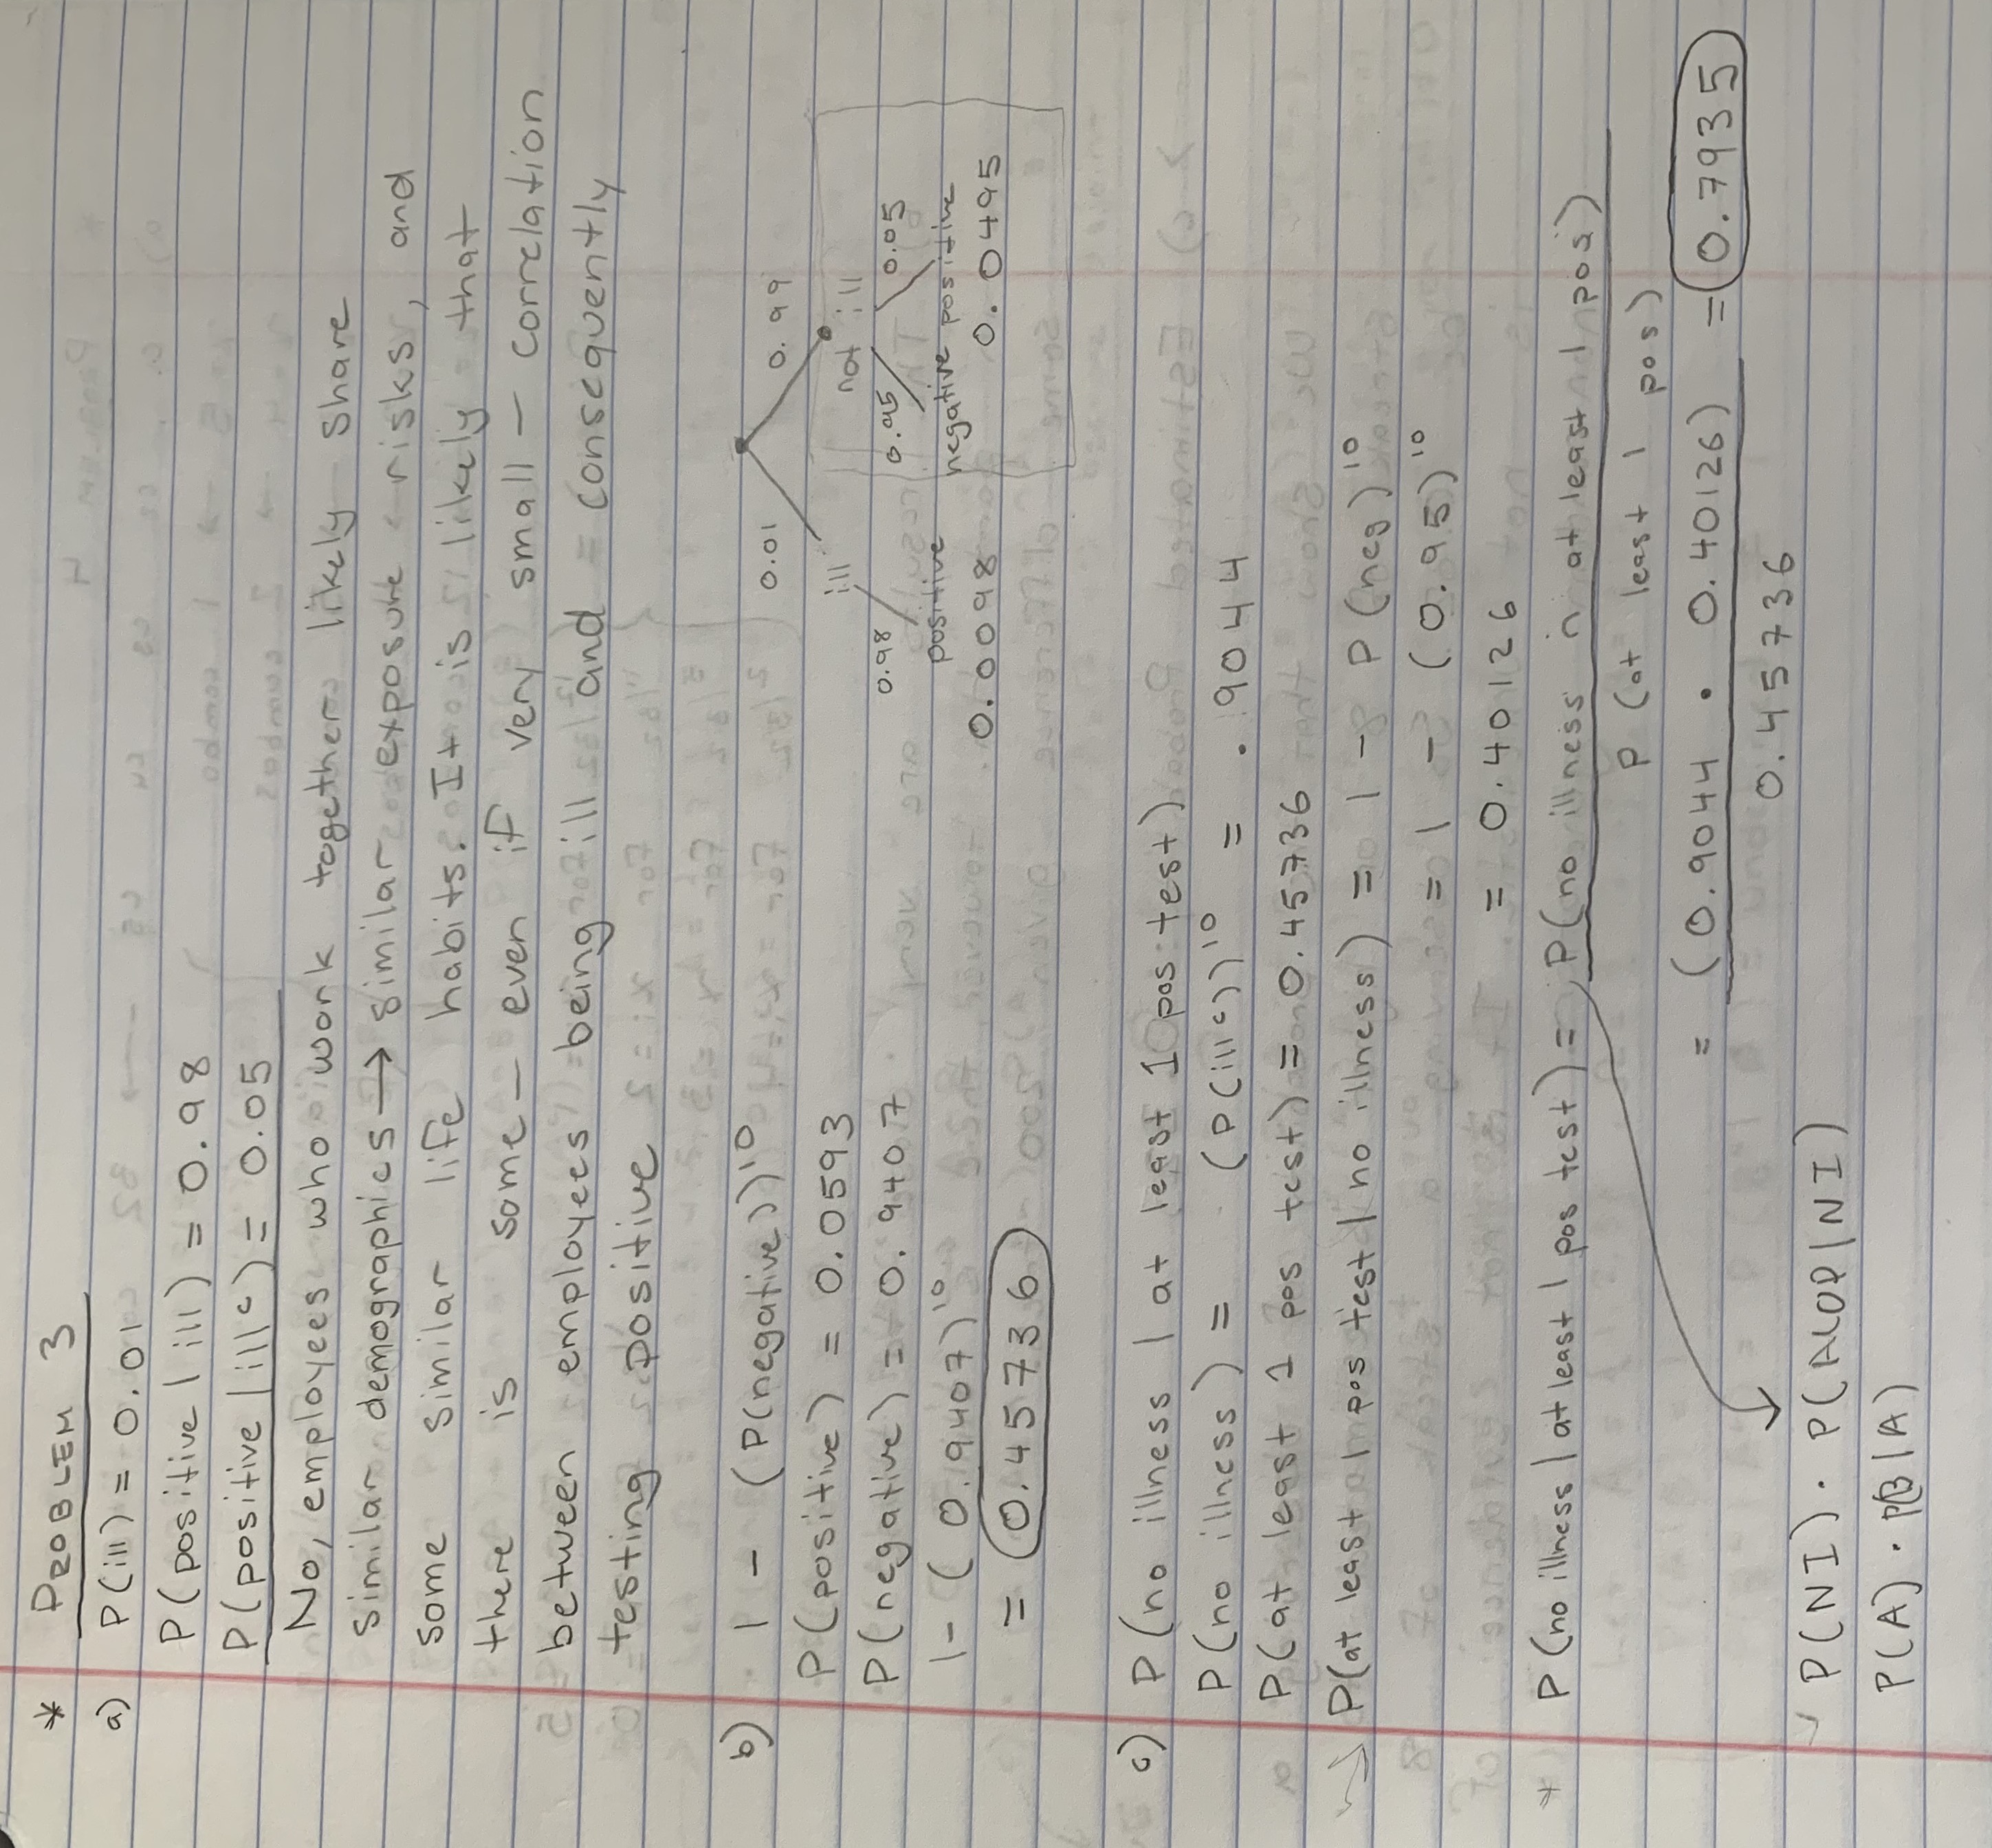 * PROBLEM 3
a) P(ill) = 0.01
P(positive | ill) = 0.98
P(positive | illᶜ) = 0.05
No, employees who work together likely share
similar demographics → similar exposure risks, and
some similar life habits. It is likely that
there is some – even if very small – correlation
between employees being ill and consequently
testing positive
b) 1 - (P(negative))¹⁰
P(positive) = 0.0593
P(negative) = 0.9407
1 - (0.9407)¹⁰
= 0.45736
0.01 0.99
ill not ill
0.98 0.95 0.05
positive negative positive
0.0098 0.0495
c) P(no illness | at least 1 pos test)
P(no illness) = (P(illᶜ))¹⁰ = .9044
P(at least 1 pos test) = 0.45736
P(at least 1 pos test | no illness) = 1 - P(neg)¹⁰
= 1 - (0.95)¹⁰
= 0.40126
* P(no illness | at least 1 pos test) = P(no illness ∩ at least 1 pos)
P(at least 1 pos)
= (0.9044 · 0.40126) = 0.7935
0.45736
P(NI) · P(ALOP|NI)
P(A) · P(B|A)